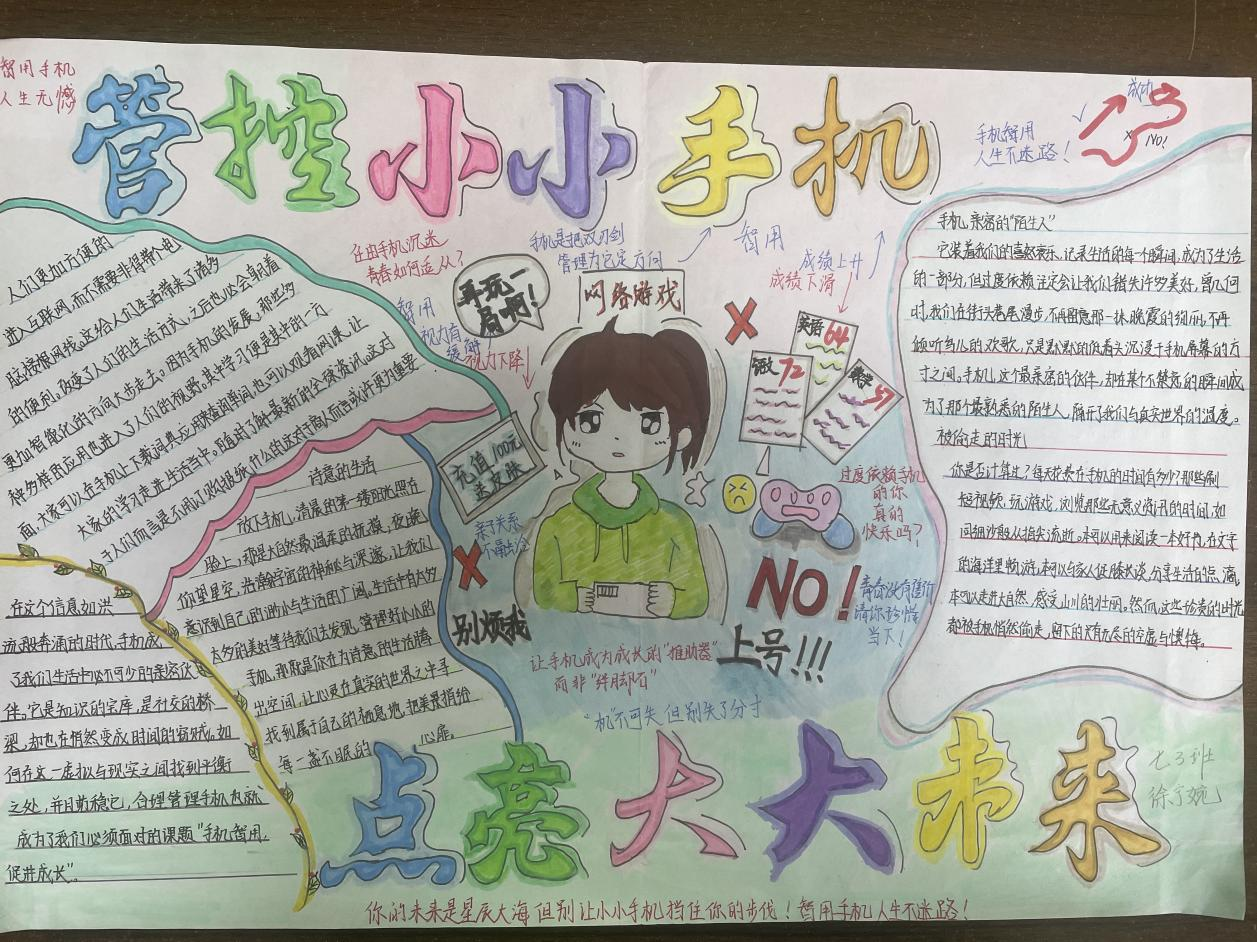 智用手机
人生无憾
管控小小手机
手机智用
人生不迷路！
成功
NO!
任由手机沉迷
青春如何适从？
手机是把双刃剑
管理为它定方向
智用
成绩上升
成绩下滑
智用
视力有
缓解
视力下降
再玩一
局啊！
网络游戏
英语 64
语文 72
数学 57
充值100元
送皮肤
亲子关系
不融洽
别烦我
过度依赖手机
的你
真的
快乐吗？
NO!
上号!!!
青春没有售价
请你珍惜
当下！
让手机成为成长的“推助器”
而非“绊脚石”
“机”不可失 但别失了分寸
人们更加方便的
进入互联网，而不需要非得带个电
脑接根网线。这给人们生活带来了诸多
的便利，改变了人们的生活方式，之后也必会朝着
更加智能化的方向大步走去。因为手机的发展，那些多
种多样的应用也进入了人们的视野。其中学习便是其中的一方
面，大家可以在手机上下载词典应用来查阅单词，也可以观看网课，让
大家的学习走进生活当中。随时了解最新的全球资讯。这对
诗意的生活
放下手机，清晨的第一缕阳光照在
脸上，那是大自然最温柔的抚摸，夜晚
你望星空，浩瀚宇宙的神秘与深邃，让我们
意识到自己的渺小与生活的广阔。生活中有太多
太多的美好等待我们去发现，管理好小小的
手机，那就是你在为诗意的生活腾
出空间，让心灵在真实的世界之中寻
找到属于自己的栖息地，把美景捎给
每一盏不眠的 心扉。
在这个信息如洪
流般奔涌的时代，手机成
了我们生活中必不可少的亲密伙
伴。它是知识的宝库，是社交的桥
梁，却也在悄然变成时间的窃贼。如
何在这一虚拟与现实之间找到平衡
之处，并且站稳它，合理管理手机也就
成为了我们必须面对的课题“手机智用，
促进成长”。
手机，亲密的“陌生人”
它装着我们的喜怒哀乐，记录生活的每一个瞬间，成为了生活
的一部分，但过度依赖注定会让我们错失许多美好，曾几何
时，我们在街头巷尾漫步，不再留意那一抹晚霞的绚丽，不再
倾听鸟儿的欢歌，只是默默的低着头沉浸于手机屏幕的方
寸之间。手机，这个最亲密的伙伴，却在某个不禁意的瞬间成
为了那个最熟悉的陌生人，隔开了我们与真实世界的温度。
被偷走的时光
你是否计算过？每天花费在手机的时间有多少？那些刷
短视频、玩游戏、浏览那些无意义资讯的时间，如
同细沙般从指尖流逝。本可以用来阅读一本好书，在文字
的海洋里畅游，本可以与家人促膝长谈，分享生活的点滴，
本可以走进大自然，感受山川的壮丽。然而，这些珍贵的时光
都被手机悄然偷走，留下的只有无尽的空虚与懊悔。
点亮大大未来
七3班
你的未来是星辰大海 但别让小小手机挡住你的步伐！智用手机 人生不迷路！